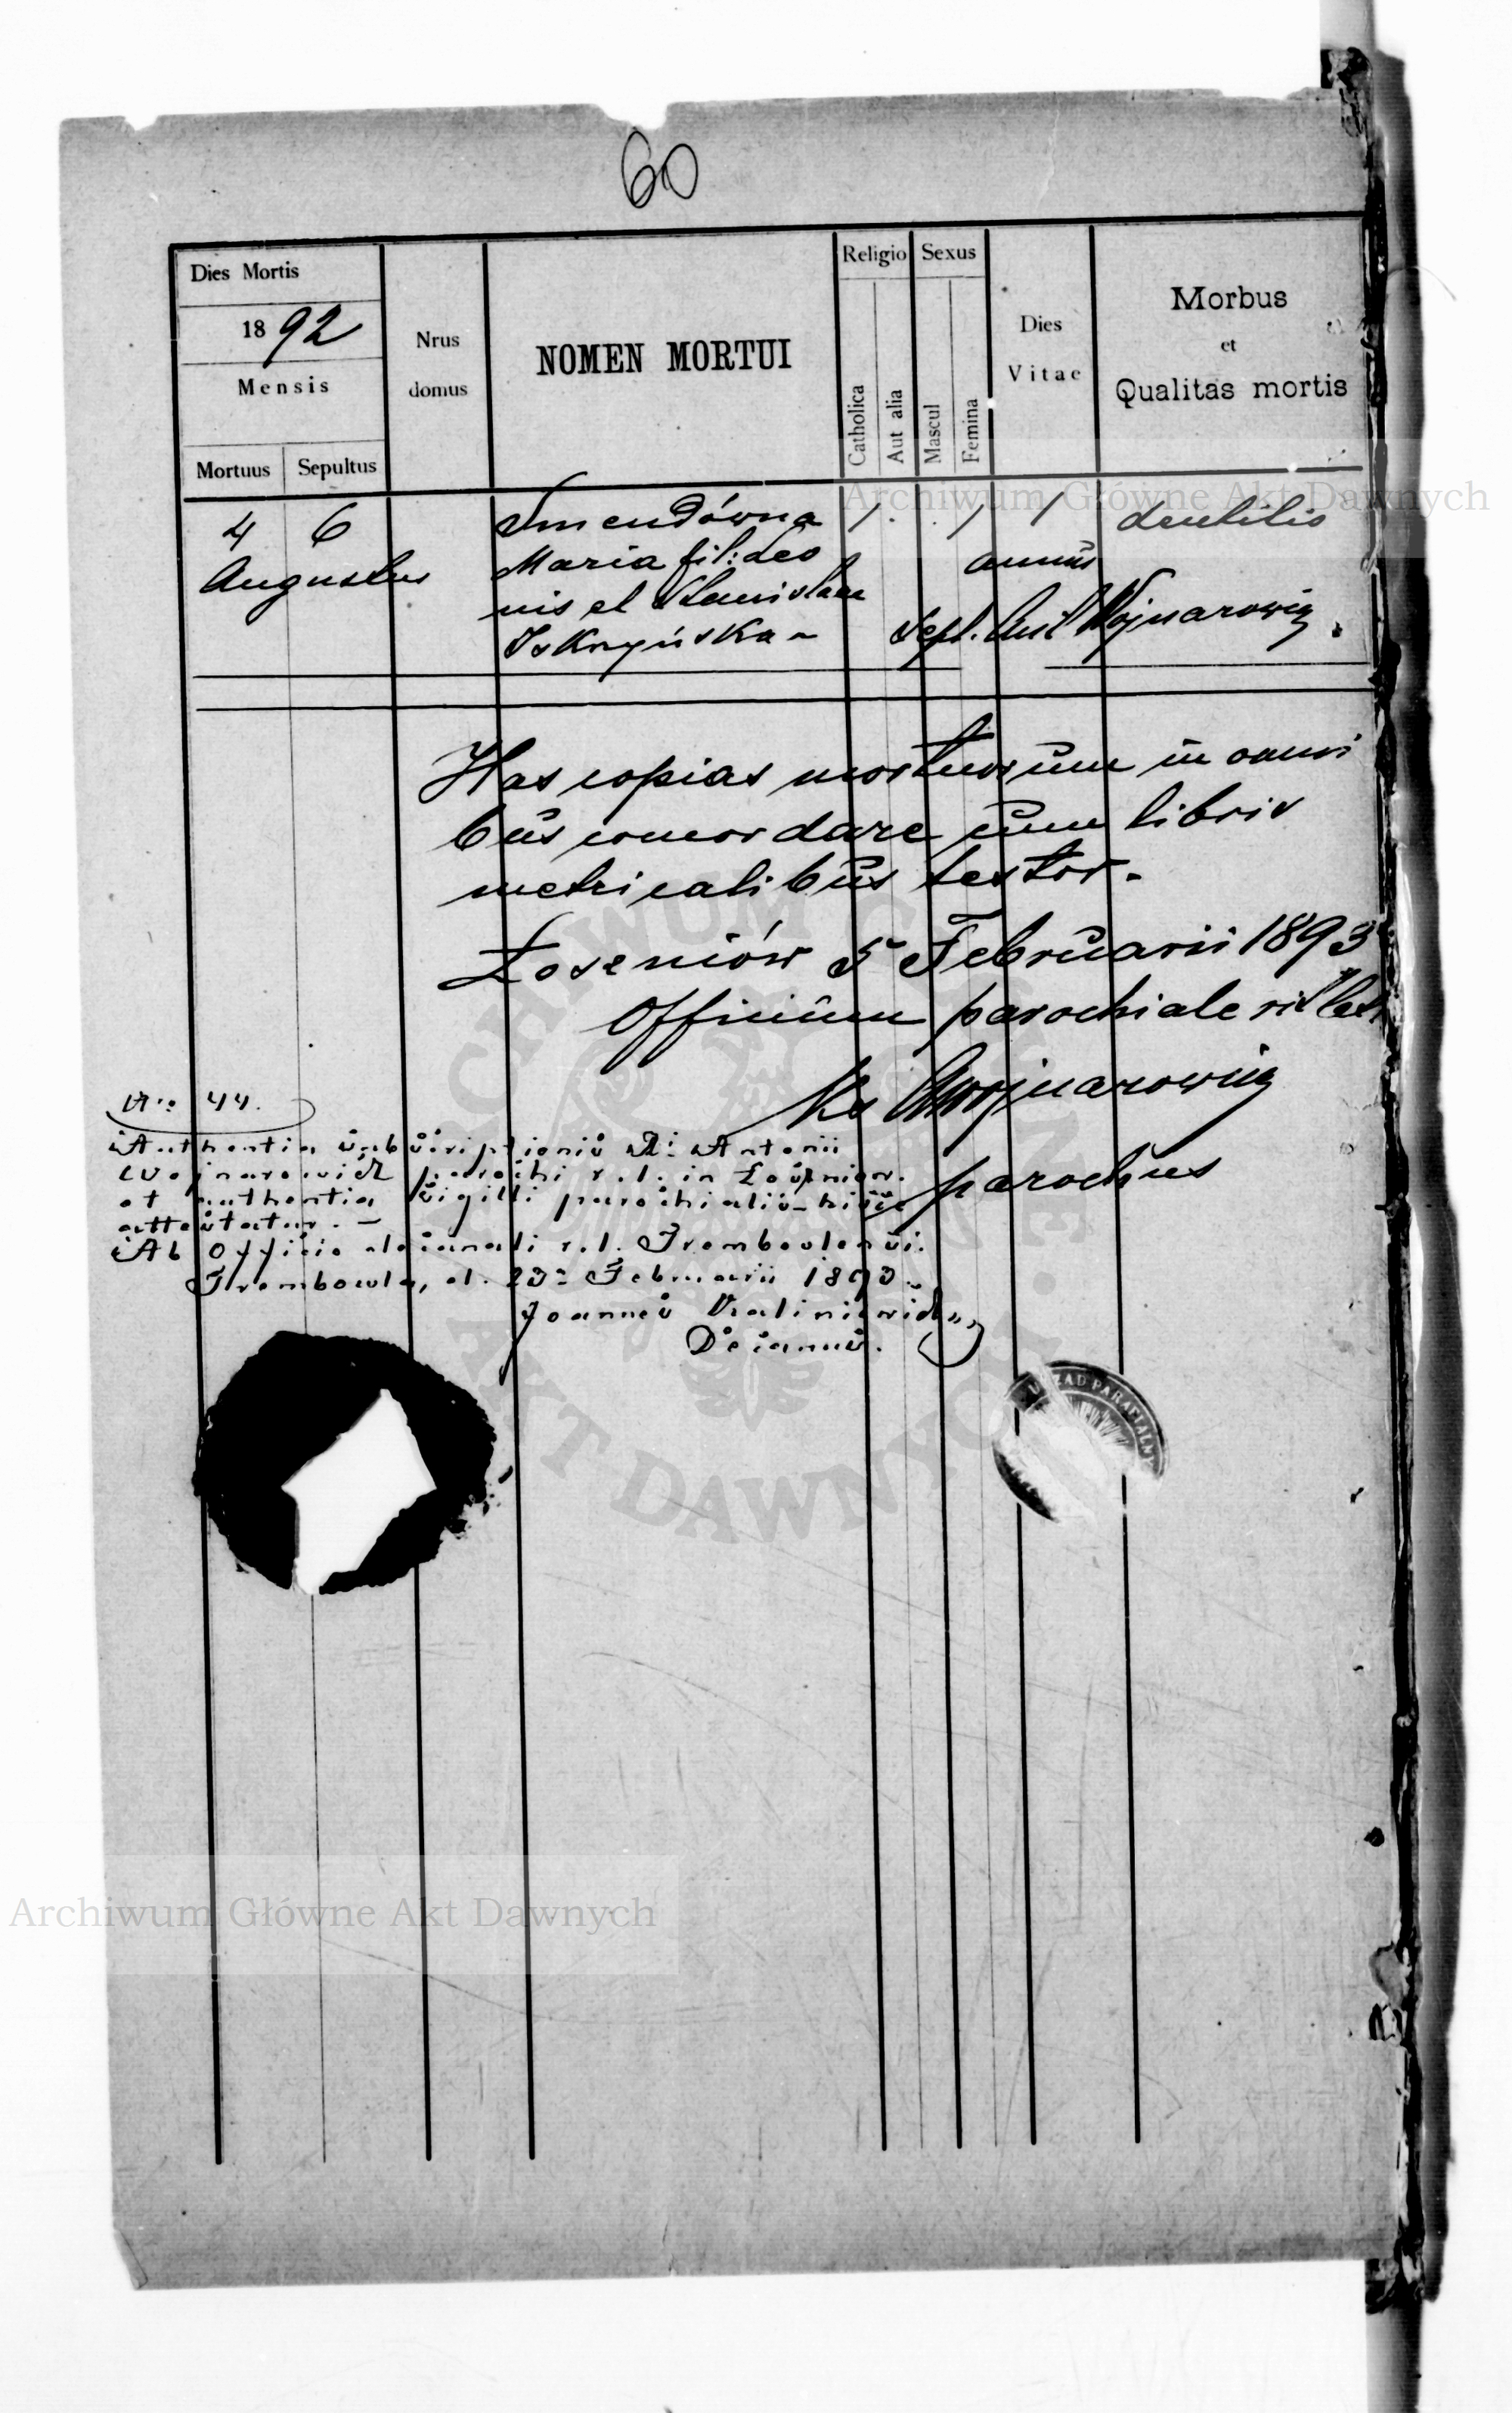 60
Dies Mortis
1892
Mensis
Mortuus Sepultus
Nrus
domus
NOMEN MORTUI
Religio
Catholica
Aut alia
Sexus
Mascul
Femina
Dies
Vitae
Morbus
et
Qualitas mortis
4 6 Smendówna 1 . . 1 1 dentitio
Augustus Maria fil: Leo annus
nis et Stanislaa
Iskrzyńska - Sepl. Ant Wojnarowicz.
Has copias mortuorum in omni
bus concordare cum libris
metricalibus testor.
Łoseniów 5 Februarii 1893
Officium parochiale rit lat
Ks AWojnarowicz
parochus
Nro 44.
Authentia subscriptionis R: Antonii
Wojnarowicz parochi r. l. in Łośniow.
et authentia sigilli parochialis hisce
attestatur. –
Ab Officio decanali r. l. Trembovlensi.
Trembowla, d. 23 Februarii 1893.
Joannes Kaliniewicz
Decanus.
URZĄD PARAFIALNY
Archiwum Główne Akt Dawnych
ARCHIWUM GŁÓWNE AKT DAWNYCH
Archiwum Główne Akt Dawnych